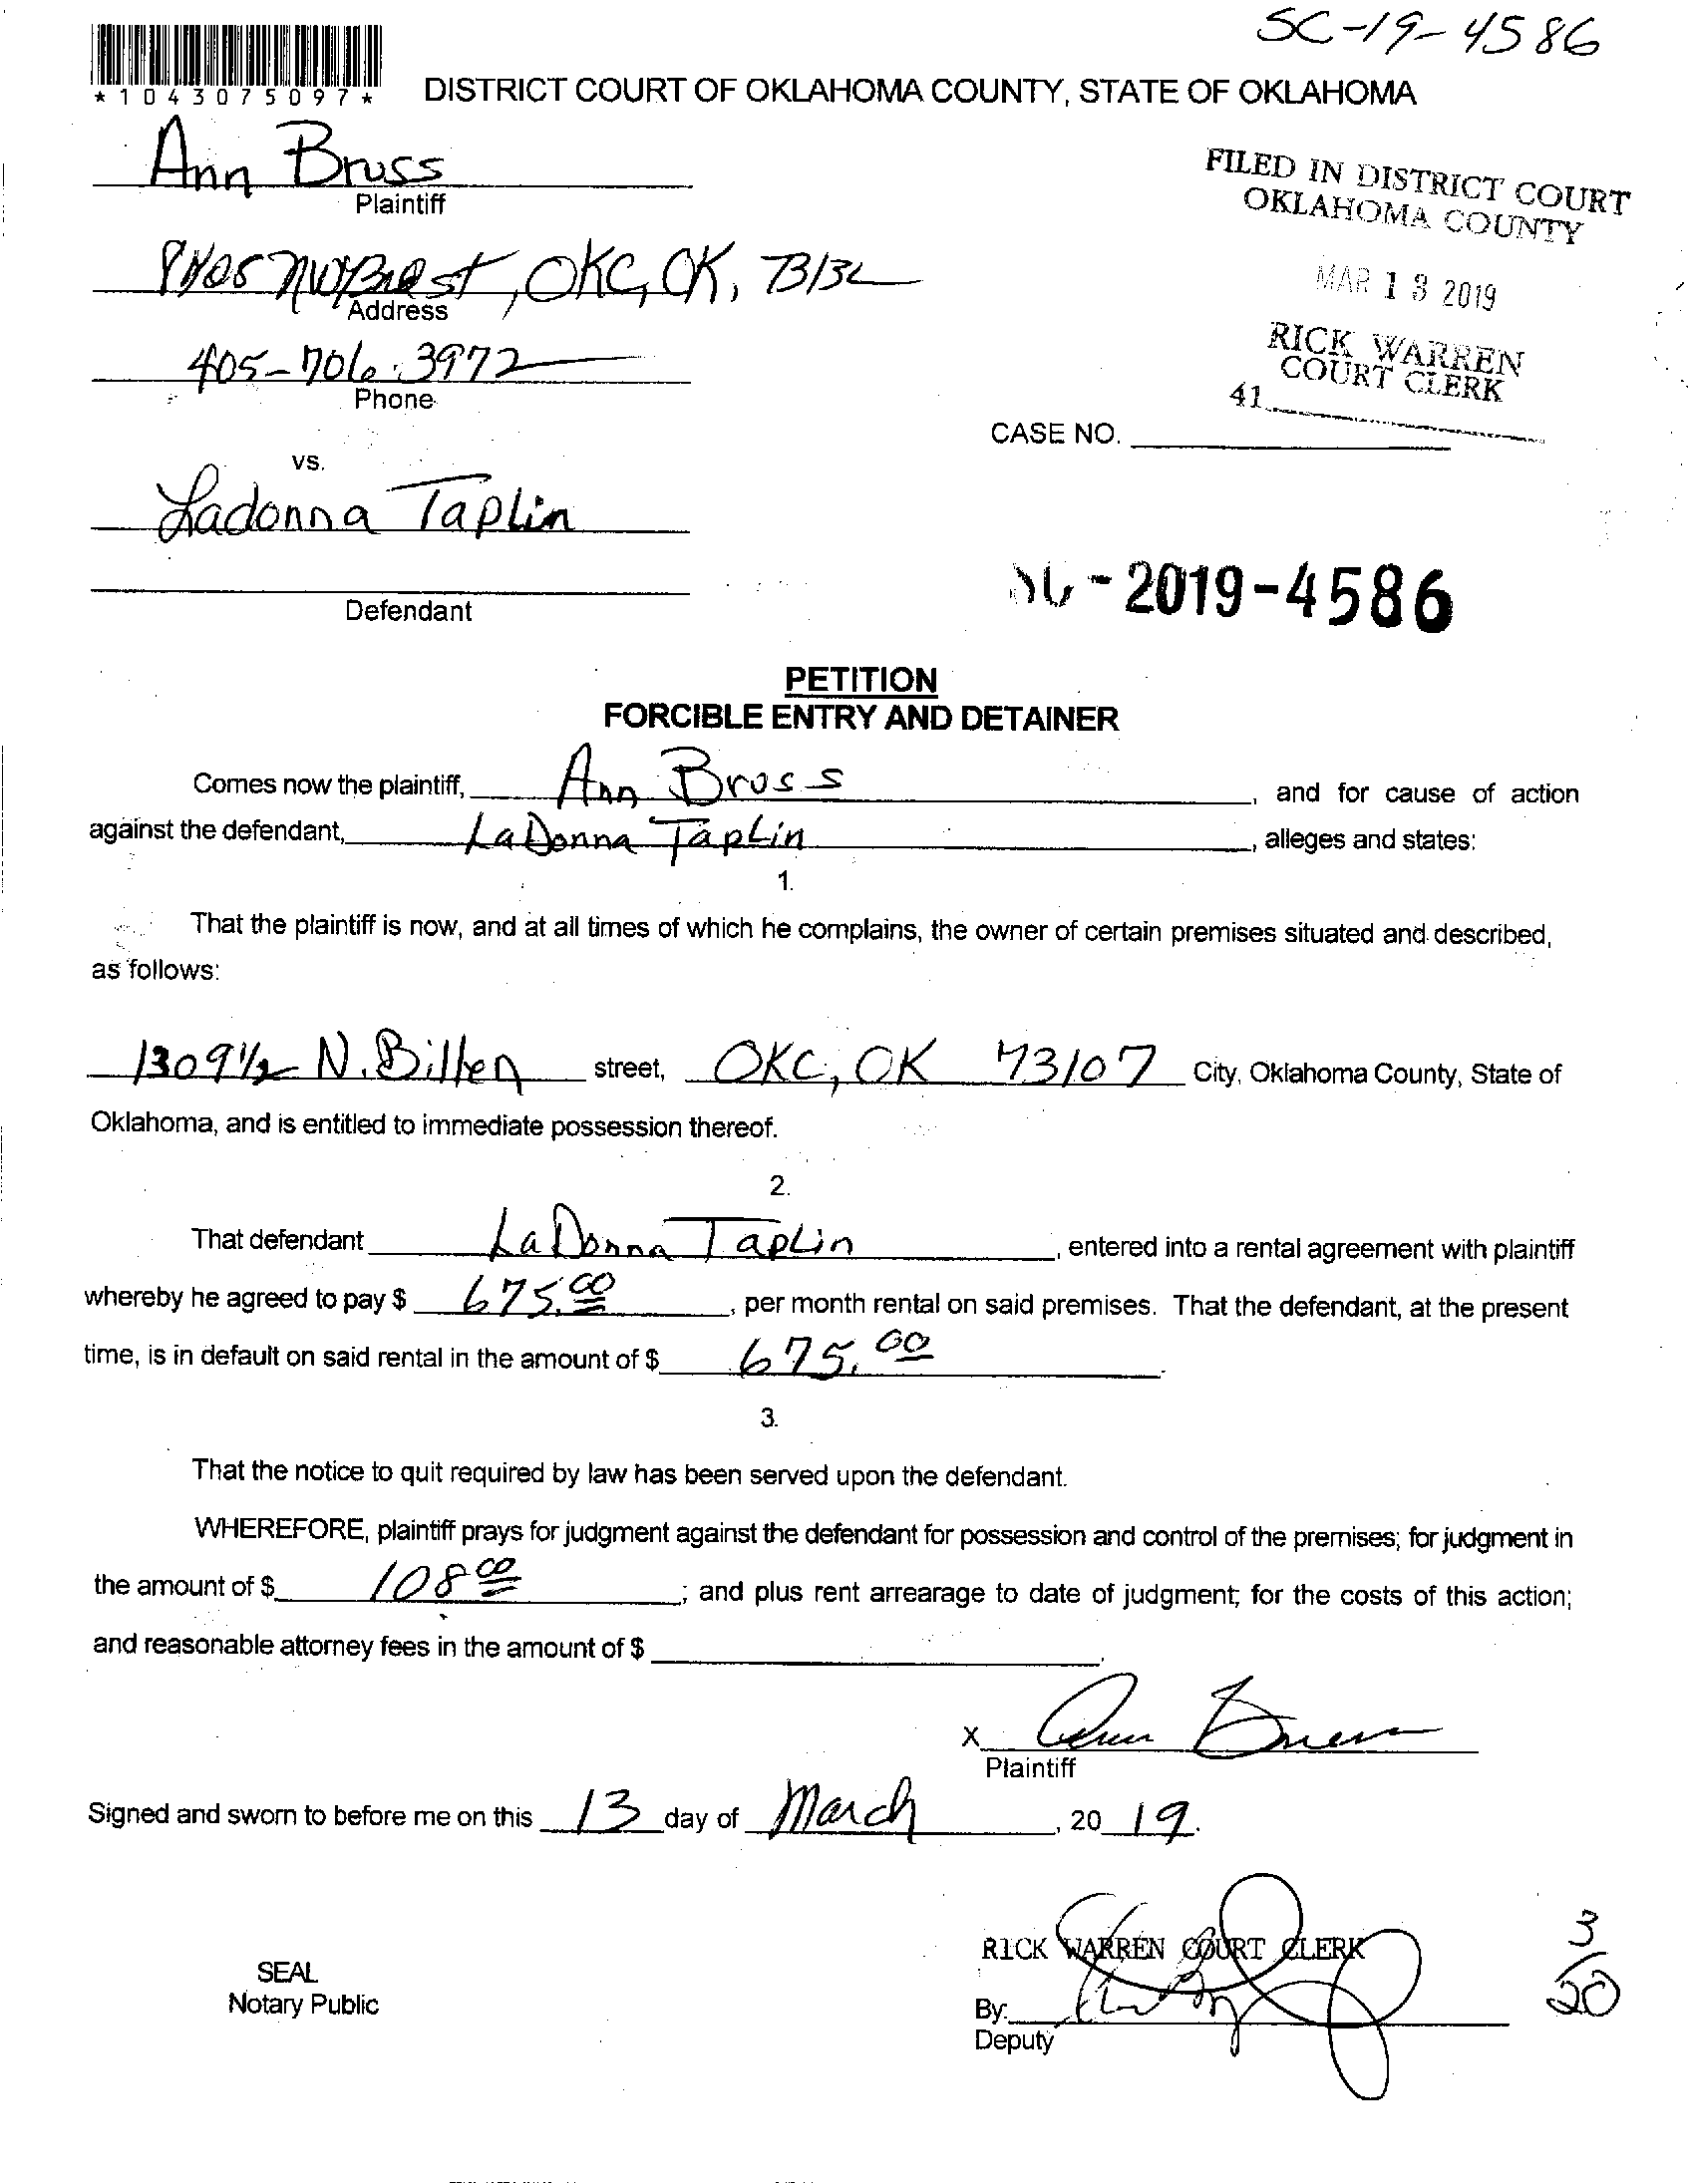 SC-19-4586
*1043075097*
DISTRICT COURT OF OKLAHOMA COUNTY, STATE OF OKLAHOMA
Ann Bruss
Plaintiff
FILED IN DISTRICT COURT
OKLAHOMA COUNTY
st, OKC, OK, 73132
Address
MAR 13 2019
RICK WARREN
COURT CLERK
405-706-3972
Phone
41
CASE NO.
vs.
Ladonna Taplin
Defendant
-2019-4586
PETITION
FORCIBLE ENTRY AND DETAINER
Comes now the plaintiff, Ann Bruss, and for cause of action
against the defendant, LaDonna Taplin, alleges and states:
1.
That the plaintiff is now, and at all times of which he complains, the owner of certain premises situated and described,
as follows:
1309 1/2 N. Billen street, OKC, OK 73107 City, Oklahoma County, State of
Oklahoma, and is entitled to immediate possession thereof.
2.
That defendant LaDonna Taplin, entered into a rental agreement with plaintiff
whereby he agreed to pay $ 675.00, per month rental on said premises. That the defendant, at the present
time, is in default on said rental in the amount of $ 675.00.
3.
That the notice to quit required by law has been served upon the defendant.
WHEREFORE, plaintiff prays for judgment against the defendant for possession and control of the premises; for judgment in
the amount of $ 108 00; and plus rent arrearage to date of judgment; for the costs of this action;
and reasonable attorney fees in the amount of $ .
X Ann Bruss
Plaintiff
Signed and sworn to before me on this 13 day of March, 20 19.
RICK WARREN COURT CLERK
3/20
SEAL
Notary Public
By:
Deputy